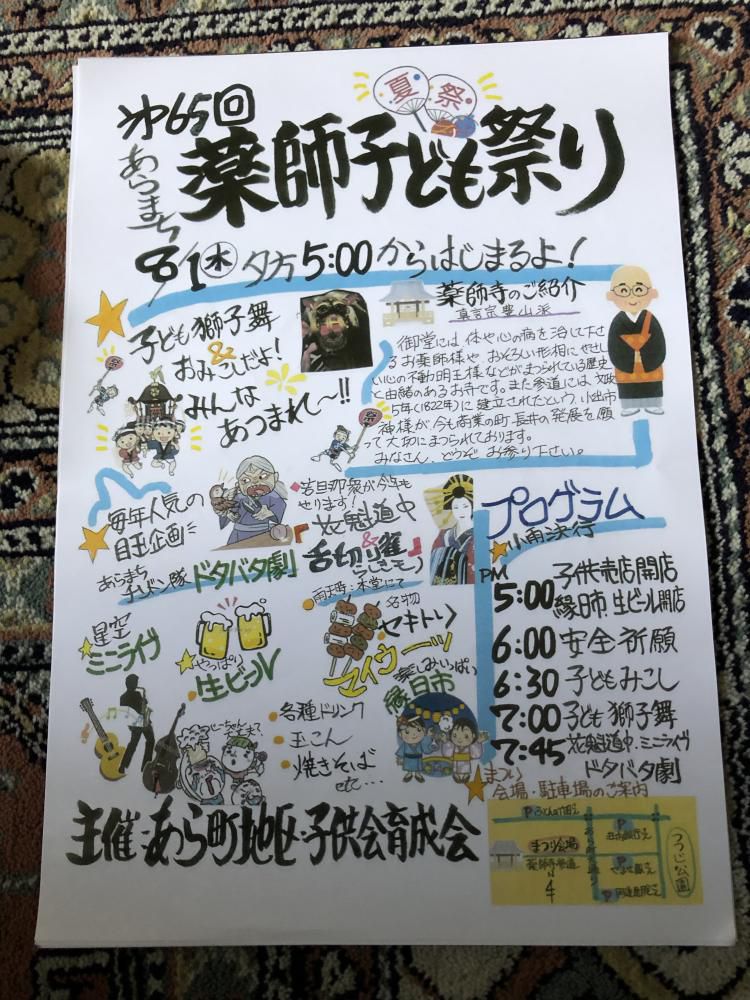 第65回
夏祭
あらまち
薬師子ども祭り
8/1木 夕方5:00からはじまるよ！
子ども獅子舞
&
おみこしだよ！
みんな
あつまれ〜!!
祭
薬師寺のご紹介
真言宗豊山派
御堂には体や心の病を治して下さ
るお薬師様や、おそろしい形相にやさし
い心の不動明王様などがまつられている歴史
と由緒のあるお寺です。また参道には、文政
5年(1822年)に建立されたという、小出市
神様が、今も商業の町・長井の発展を願
って大切にまつられております。
みなさん、どうぞお参り下さい。
祭
毎年人気の
目玉企画
あらまち
チンドン隊
ドタバタ劇
若旦那衆が今年も
やります！
花魁道中
&
舌切り雀
雨天時：本堂にて
星空
ミニライブ
やっぱり
生ビール
名物
セキトリ
マイウーッ
楽しみいっぱい
縁日市
・各種ドリンク
・玉こん
・焼きそば
etc…
プログラム
小雨決行
PM
5:00 子供売店開店
縁日市・生ビール開店
6:00 安全祈願
6:30 子どもみこし
7:00 子ども獅子舞
7:45 花魁道中・ミニライブ
ドタバタ劇
まつり
会場・駐車場のご案内
P
まつり会場
薬師寺参道
あら町通り
P
P
P
つつじ公園
主催：あら町地区・子供会育成会